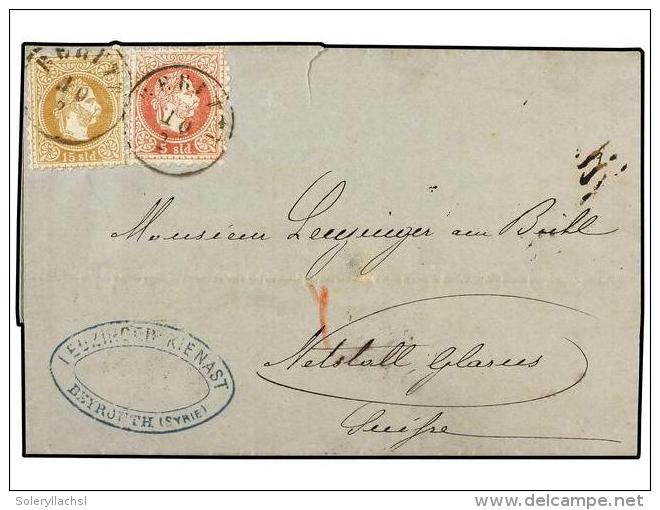 15 sld
5 sld
10
10
Monsieur Leuzinger am Bühl
Netstall, Glarus
Suisse
LEUZINGER-KIENAST
BEYROUTH (SYRIE)
Soleryllachsl
delcampe.net